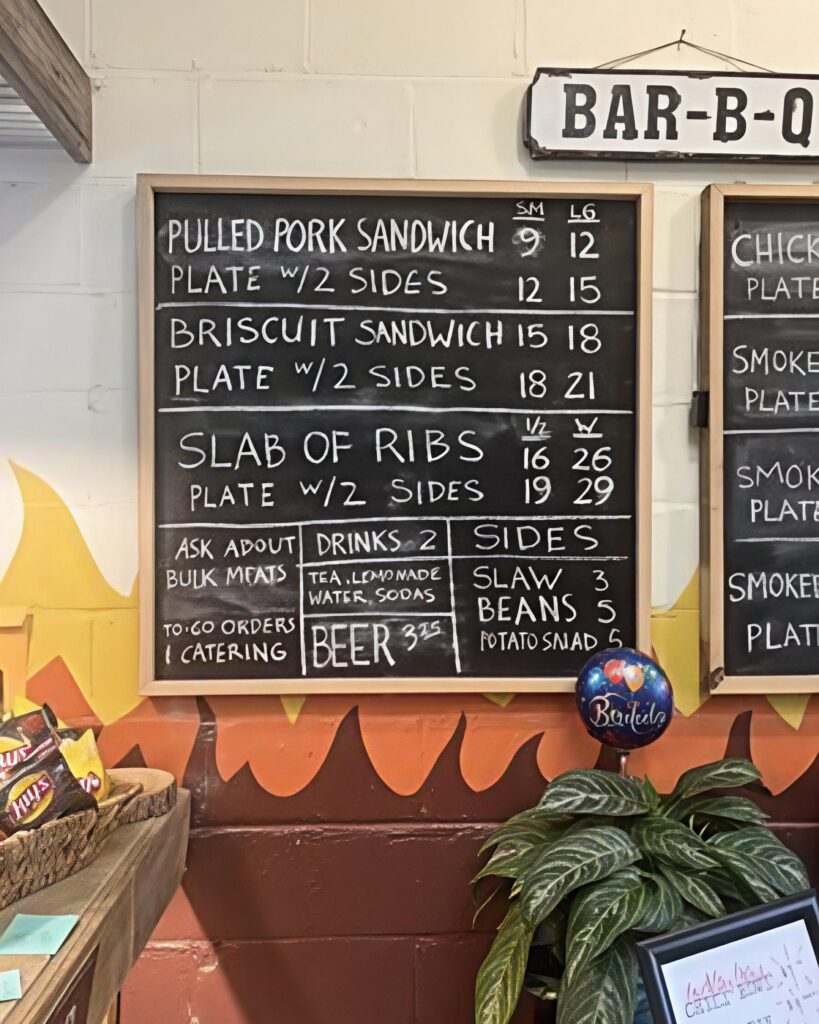 BAR-B-Q
SM LG
PULLED PORK SANDWICH 9 12
PLATE W/2 SIDES 12 15
BRISCUIT SANDWICH 15 18
PLATE W/2 SIDES 18 21
1/2 W
SLAB OF RIBS 16 26
PLATE W/2 SIDES 19 29
ASK ABOUT
BULK MEATS
TO-GO ORDERS
CATERING
DRINKS 2
TEA, LEMONADE
WATER, SODAS
BEER 3
SIDES
SLAW 3
BEANS 5
POTATO SALAD
CHICK
PLATE
SMOKE
PLATE
SMOK
PLATE
SMOKED
PLAT